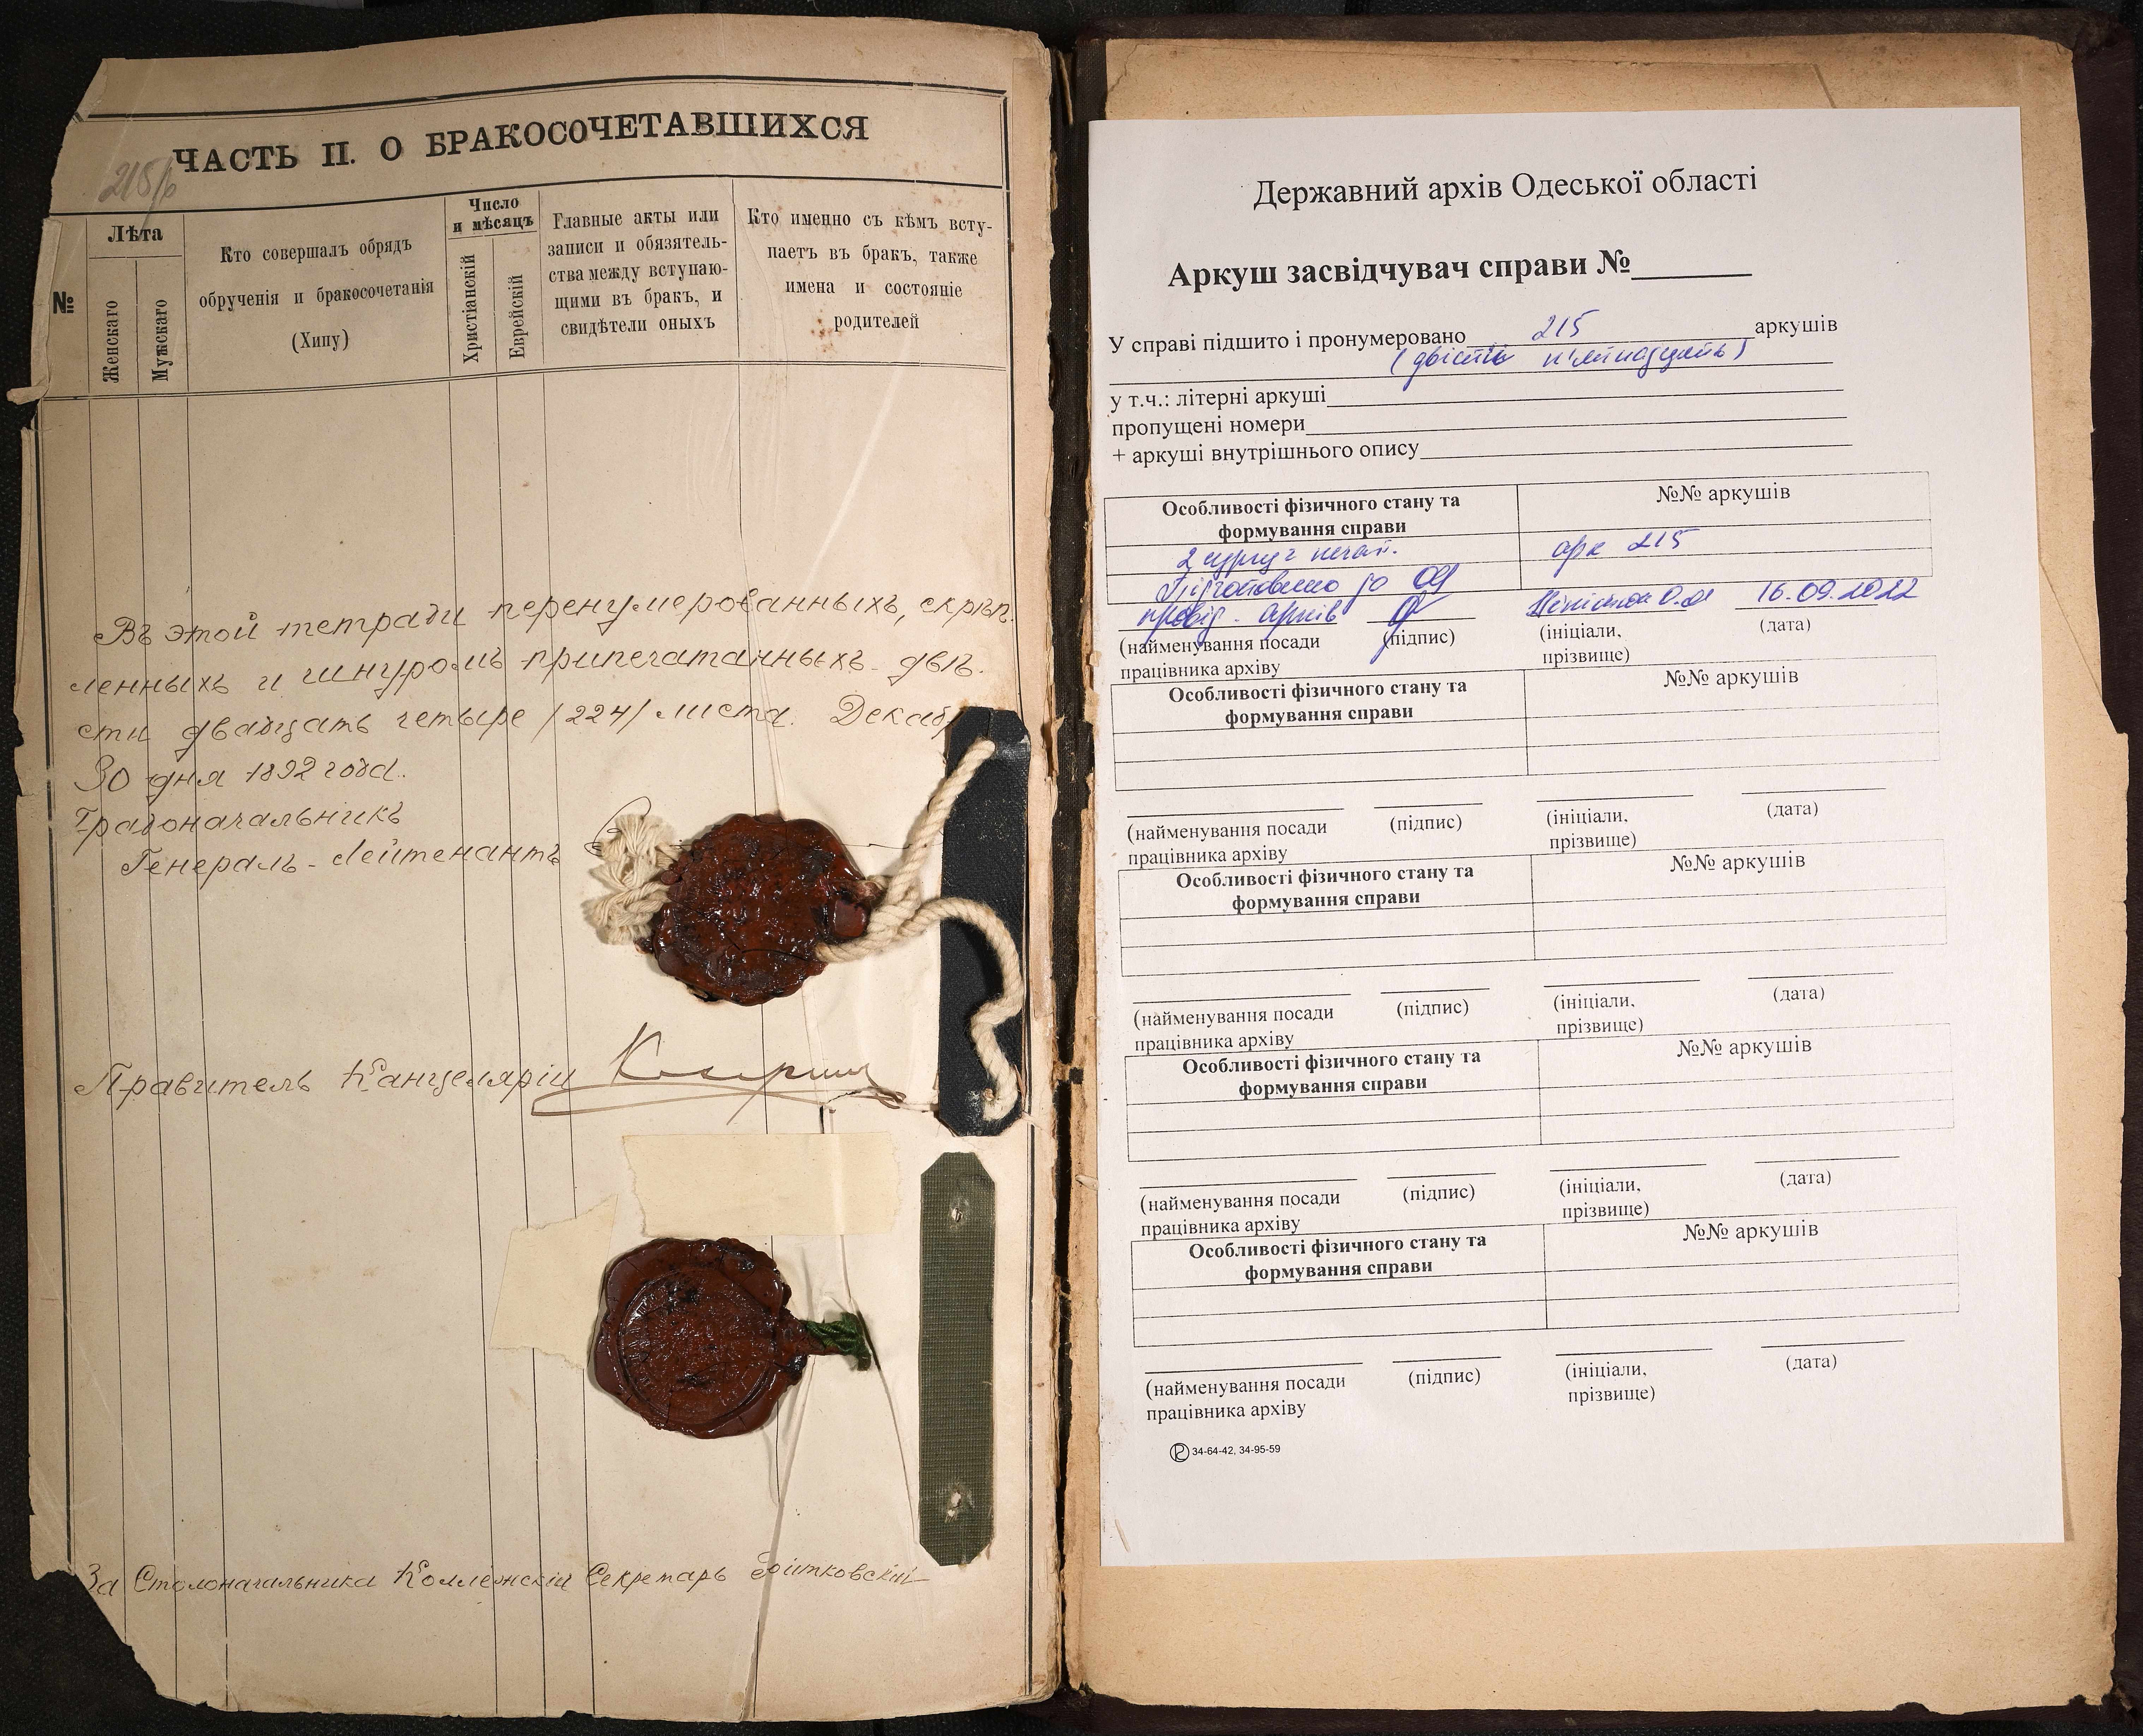 ЧАСТЬ II. О БРАКОСОЧЕТАВШИХСЯ
215/б
№
Лѣта
Женскаго
Мужскаго
Кто совершалъ обрядъ
обрученія и бракосочетанія
(Хипу)
Число
и мѣсяцъ
Христіанскій
Еврейскій
Главные акты или
записи и обязатель-
ства между вступаю-
щими въ бракъ, и
свидѣтели оныхъ
Кто именно съ кѣмъ всту-
паетъ въ бракъ, также
имена и состояніе
родителей
Въ этой тетради перенумерованныхъ, скрѣп-
ленныхъ и шнуромъ припечатанныхъ двѣ-
сти двадцать четыре /224/ листа. Декаб
30 дня 1892 года.
Градоначальникъ
Генералъ-Лейтенантъ
Правитель Канцеляріи
За Столоначальника Коллежскій Секретарь
Державний архів Одеської області
Аркуш засвідчувач справи №______
У справі підшито і пронумеровано 215 аркушів
(двісті п'ятнадцять)
у т.ч.: літерні аркуші
пропущені номери
+ аркуші внутрішнього опису
Особливості фізичного стану та
формування справи
№№ аркушів
2 сургуч печат.
арк 215
Підготовлено до
провід. архів
16.09.2022
(найменування посади
працівника архіву
(підпис)
(ініціали,
прізвище)
(дата)
Особливості фізичного стану та
формування справи
№№ аркушів
(найменування посади
працівника архіву
(підпис)
(ініціали,
прізвище)
(дата)
Особливості фізичного стану та
формування справи
№№ аркушів
(найменування посади
працівника архіву
(підпис)
(ініціали,
прізвище)
(дата)
Особливості фізичного стану та
формування справи
№№ аркушів
(найменування посади
працівника архіву
(підпис)
(ініціали,
прізвище)
(дата)
Особливості фізичного стану та
формування справи
№№ аркушів
(найменування посади
працівника архіву
(підпис)
(ініціали,
прізвище)
(дата)
34-64-42, 34-95-59